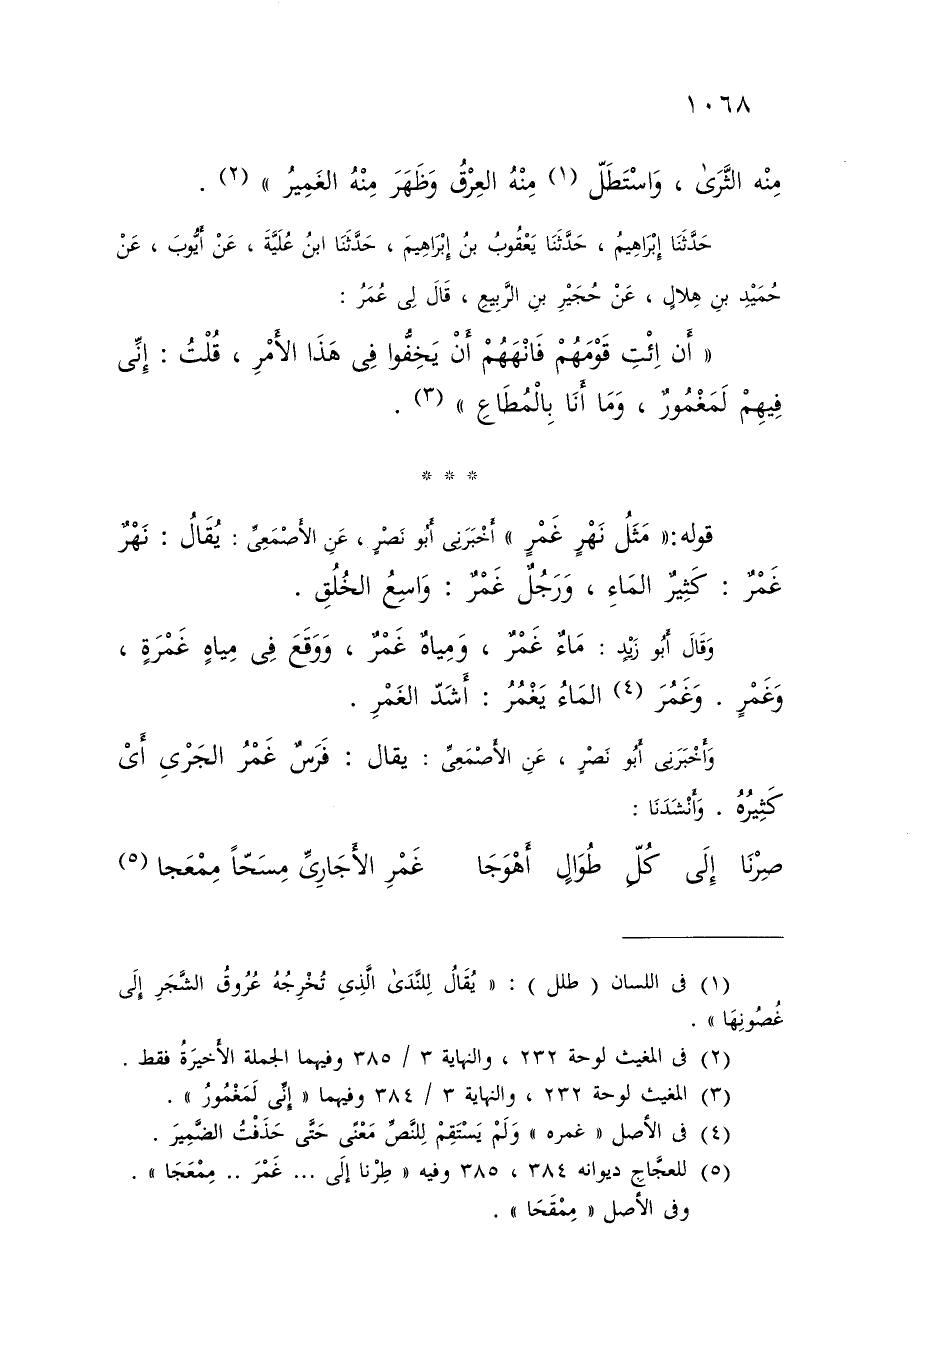 ١٠٦٨
مِنْه الثَّرَىٰ ، وَاسْتَطَلّ (١) مِنْهُ العِرْقُ وَظَهَرَ مِنْهُ الغَمِيرُ » (٢) .
حَدَّثَنَا إِبْرَاهِيمُ ، حَدَّثَنَا يَعْقُوبُ بنُ إِبْرَاهِيمَ ، حَدَّثَنَا ابنُ عُلَيَّةَ ، عَنْ أَيُّوبَ ، عَنْ
حُمَيْدِ بنِ هِلالٍ ، عَنْ حُجَيْرِ بنِ الرَّبِيعِ ، قَالَ لِى عُمَرُ :
« أَن اِئْتِ قَوْمَهُمْ فَانْهَهُمْ أَنْ يَخِفُّوا فِى هَذَا الأَمْرِ ، قُلْتُ : إِنِّى
فِيهِمْ لَمَغْمُورٌ ، وَمَا أَنَا بِالْمُطَاعِ » (٣) .
* * *
قوله :« مَثَلُ نَهْرٍ غَمْرٍ » أَخْبَرَنِى أَبُو نَصْرٍ ، عَنِ الأَصْمَعِىِّ : يُقَالُ : نَهْرٌ
غَمْرٌ : كَثِيرُ المَاءِ ، وَرَجُلٌ غَمْرٌ : وَاسِعُ الخُلُقِ .
وَقَالَ أَبُو زَيْدٍ : مَاءٌ غَمْرٌ ، وَمِياهٌ غَمْرٌ ، وَوَقَعَ فِى مِياهٍ غَمْرَةٍ ،
وَغَمْرٍ . وَغَمُرَ (٤) المَاءُ يَغْمُرُ : أَشَدّ الغَمْرِ .
وَأَخْبَرَنِى أَبُو نَصْرٍ ، عَنِ الأَصْمَعِىِّ : يقال : فَرَسٌ غَمْرُ الجَرْىِ أَىْ
كَثِيرُهُ . وَأَنْشَدَنَا :
صِرْنَا إِلَى كُلّ طُوَالٍ أَهْوَجَا غَمْرِ الأَجَارِىِّ مِسَحّاً مِمْعَجا (٥)
(١) فى اللسان ( طلل ) : « يُقَالُ لِلنَّدَىٰ الَّذِي تُخْرِجُهُ عُرُوقُ الشَّجَرِ إِلَى
غُصُونِهَا » .
(٢) فى المغيث لوحة ٢٣٢ ، والنهاية ٣ / ٣٨٥ وفيهما الجملة الأَخيرَةُ فقط .
(٣) المغيث لوحة ٢٣٢ ، والنهاية ٣ / ٣٨٤ وفيهما « إِنِّى لَمَغْمُورٌ » .
(٤) فى الأصل « غمره » وَلَمْ يَسْتَقِمْ لِلنَّصِّ مَعْنًى حَتَّى حَذَفْتُ الضَّمِيرَ .
(٥) للعجَّاجِ ديوانه ٣٨٤ ، ٣٨٥ وفيه « طِرْنا إِلَى ... غَمْرَ .. مِمْعَجَا » .
وفى الأصل « مِمْقَحَا » .